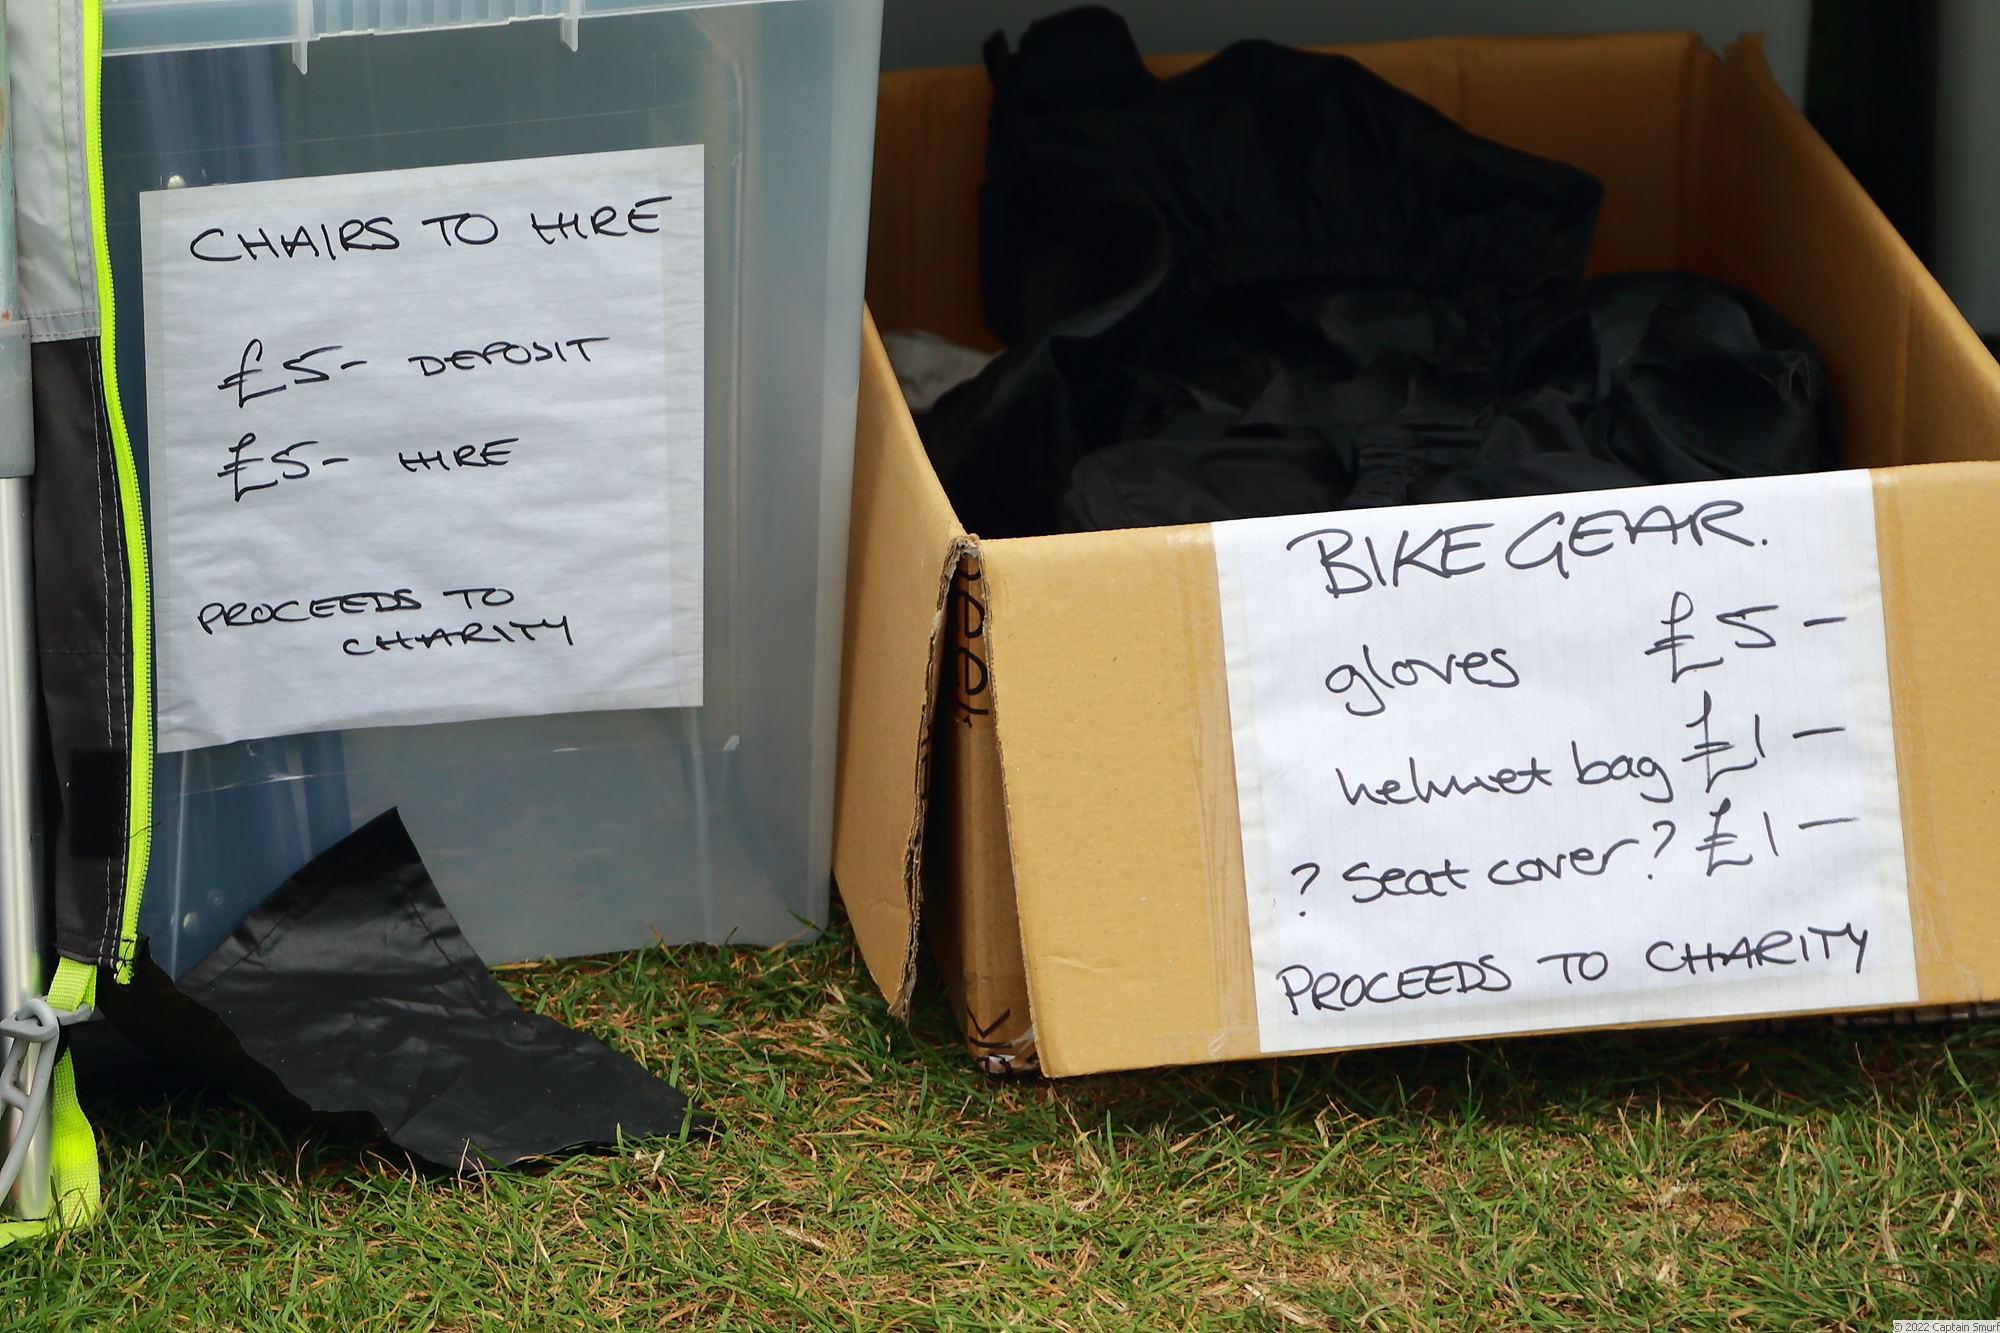 CHAIRS TO HIRE
£5- DEPOSIT
£5- HIRE
PROCEEDS TO
CHARITY
BIKE GEAR.
gloves £5-
helmet bag £1-
? Seat cover? £1-
PROCEEDS TO CHARITY
© 2022 Captain Smurf